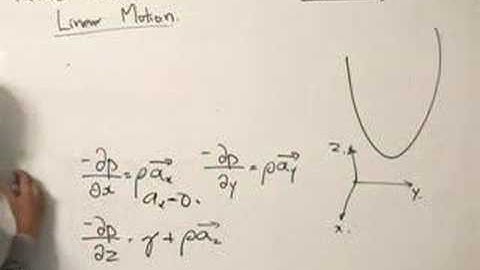 Linear Motion.
-∂p/∂x = ρa⃗x
-∂p/∂y = ρa⃗y
ax=0.
-∂p/∂z · γ + ρa⃗z
z
y
x